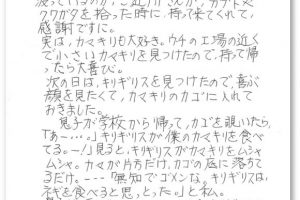 渡っているのか、ご近所さんが、カブトムシ
クワガタを拾った時に、持って来てくれて、
感謝ですに。
実は、カマキリも大好き。ウチの工場の近く
で小さいカマキリを見つけたので、持って帰
ったら大喜び。
次の日は、キリギリスを見つけたので、喜ぶ
顔を見たくて、カマキリのカゴに入れて
おきました。
息子が学校から帰って、カゴを覗いたら、
「あー・・・。」「キリギリスが僕のカマキリを食べ
てる。ー」見ると、キリギリスがカマキリをムシャ
ムシャ。カマが片方だけ、カゴの底に落ちて
るだけ。---「無知でゴメンな。キリギリスは
ネギを食べると思っとった。」と私。